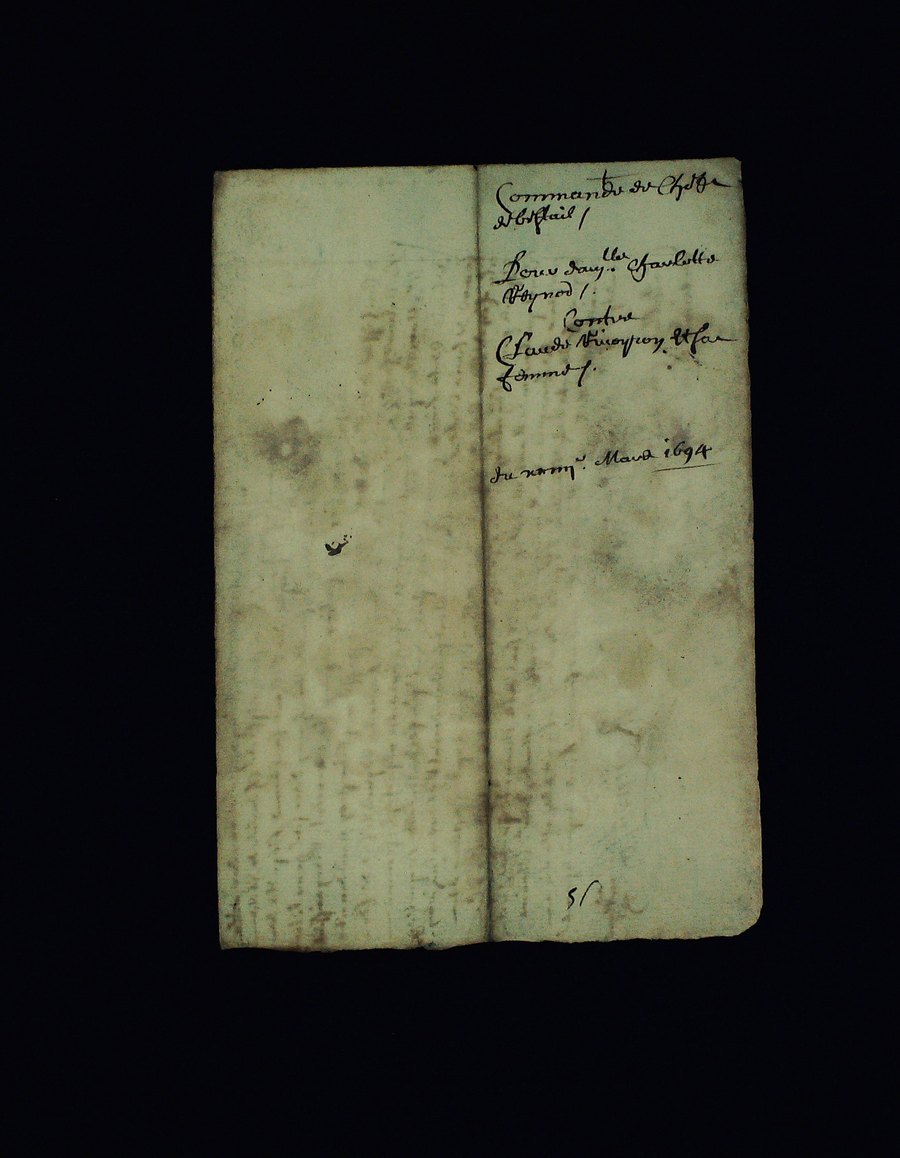 Commande de Chept
de bestail /
Pour dam.lle Charlotte
Reynod /.
Contre
Claude & sa
femme /.
du Mars 1694
5/